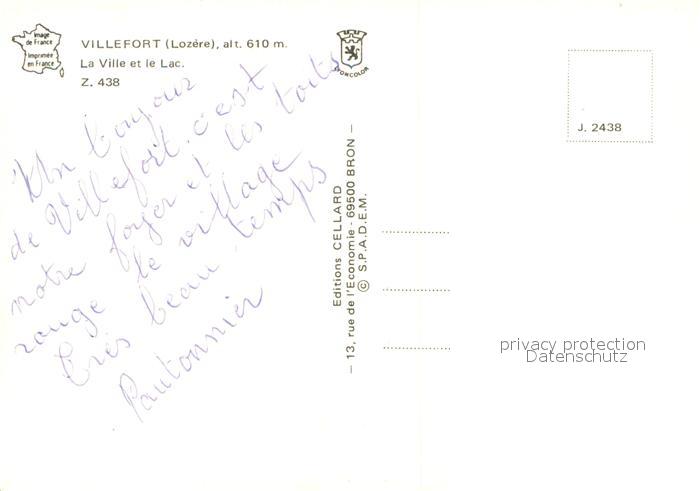 Image
de France
Imprimée
en France
VILLEFORT (Lozère), alt. 610 m.
La Ville et le Lac.
Z. 438
J. 2438
Un Bonjour
de Villefort. c'est
notre foyer et les toits
rouge le village
très beau temps
Pautonnier
Editions CELLARD
— 13, rue de l'Economie - 69500 BRON —
© S.P.A.D.E.M.
privacy protection
Datenschutz